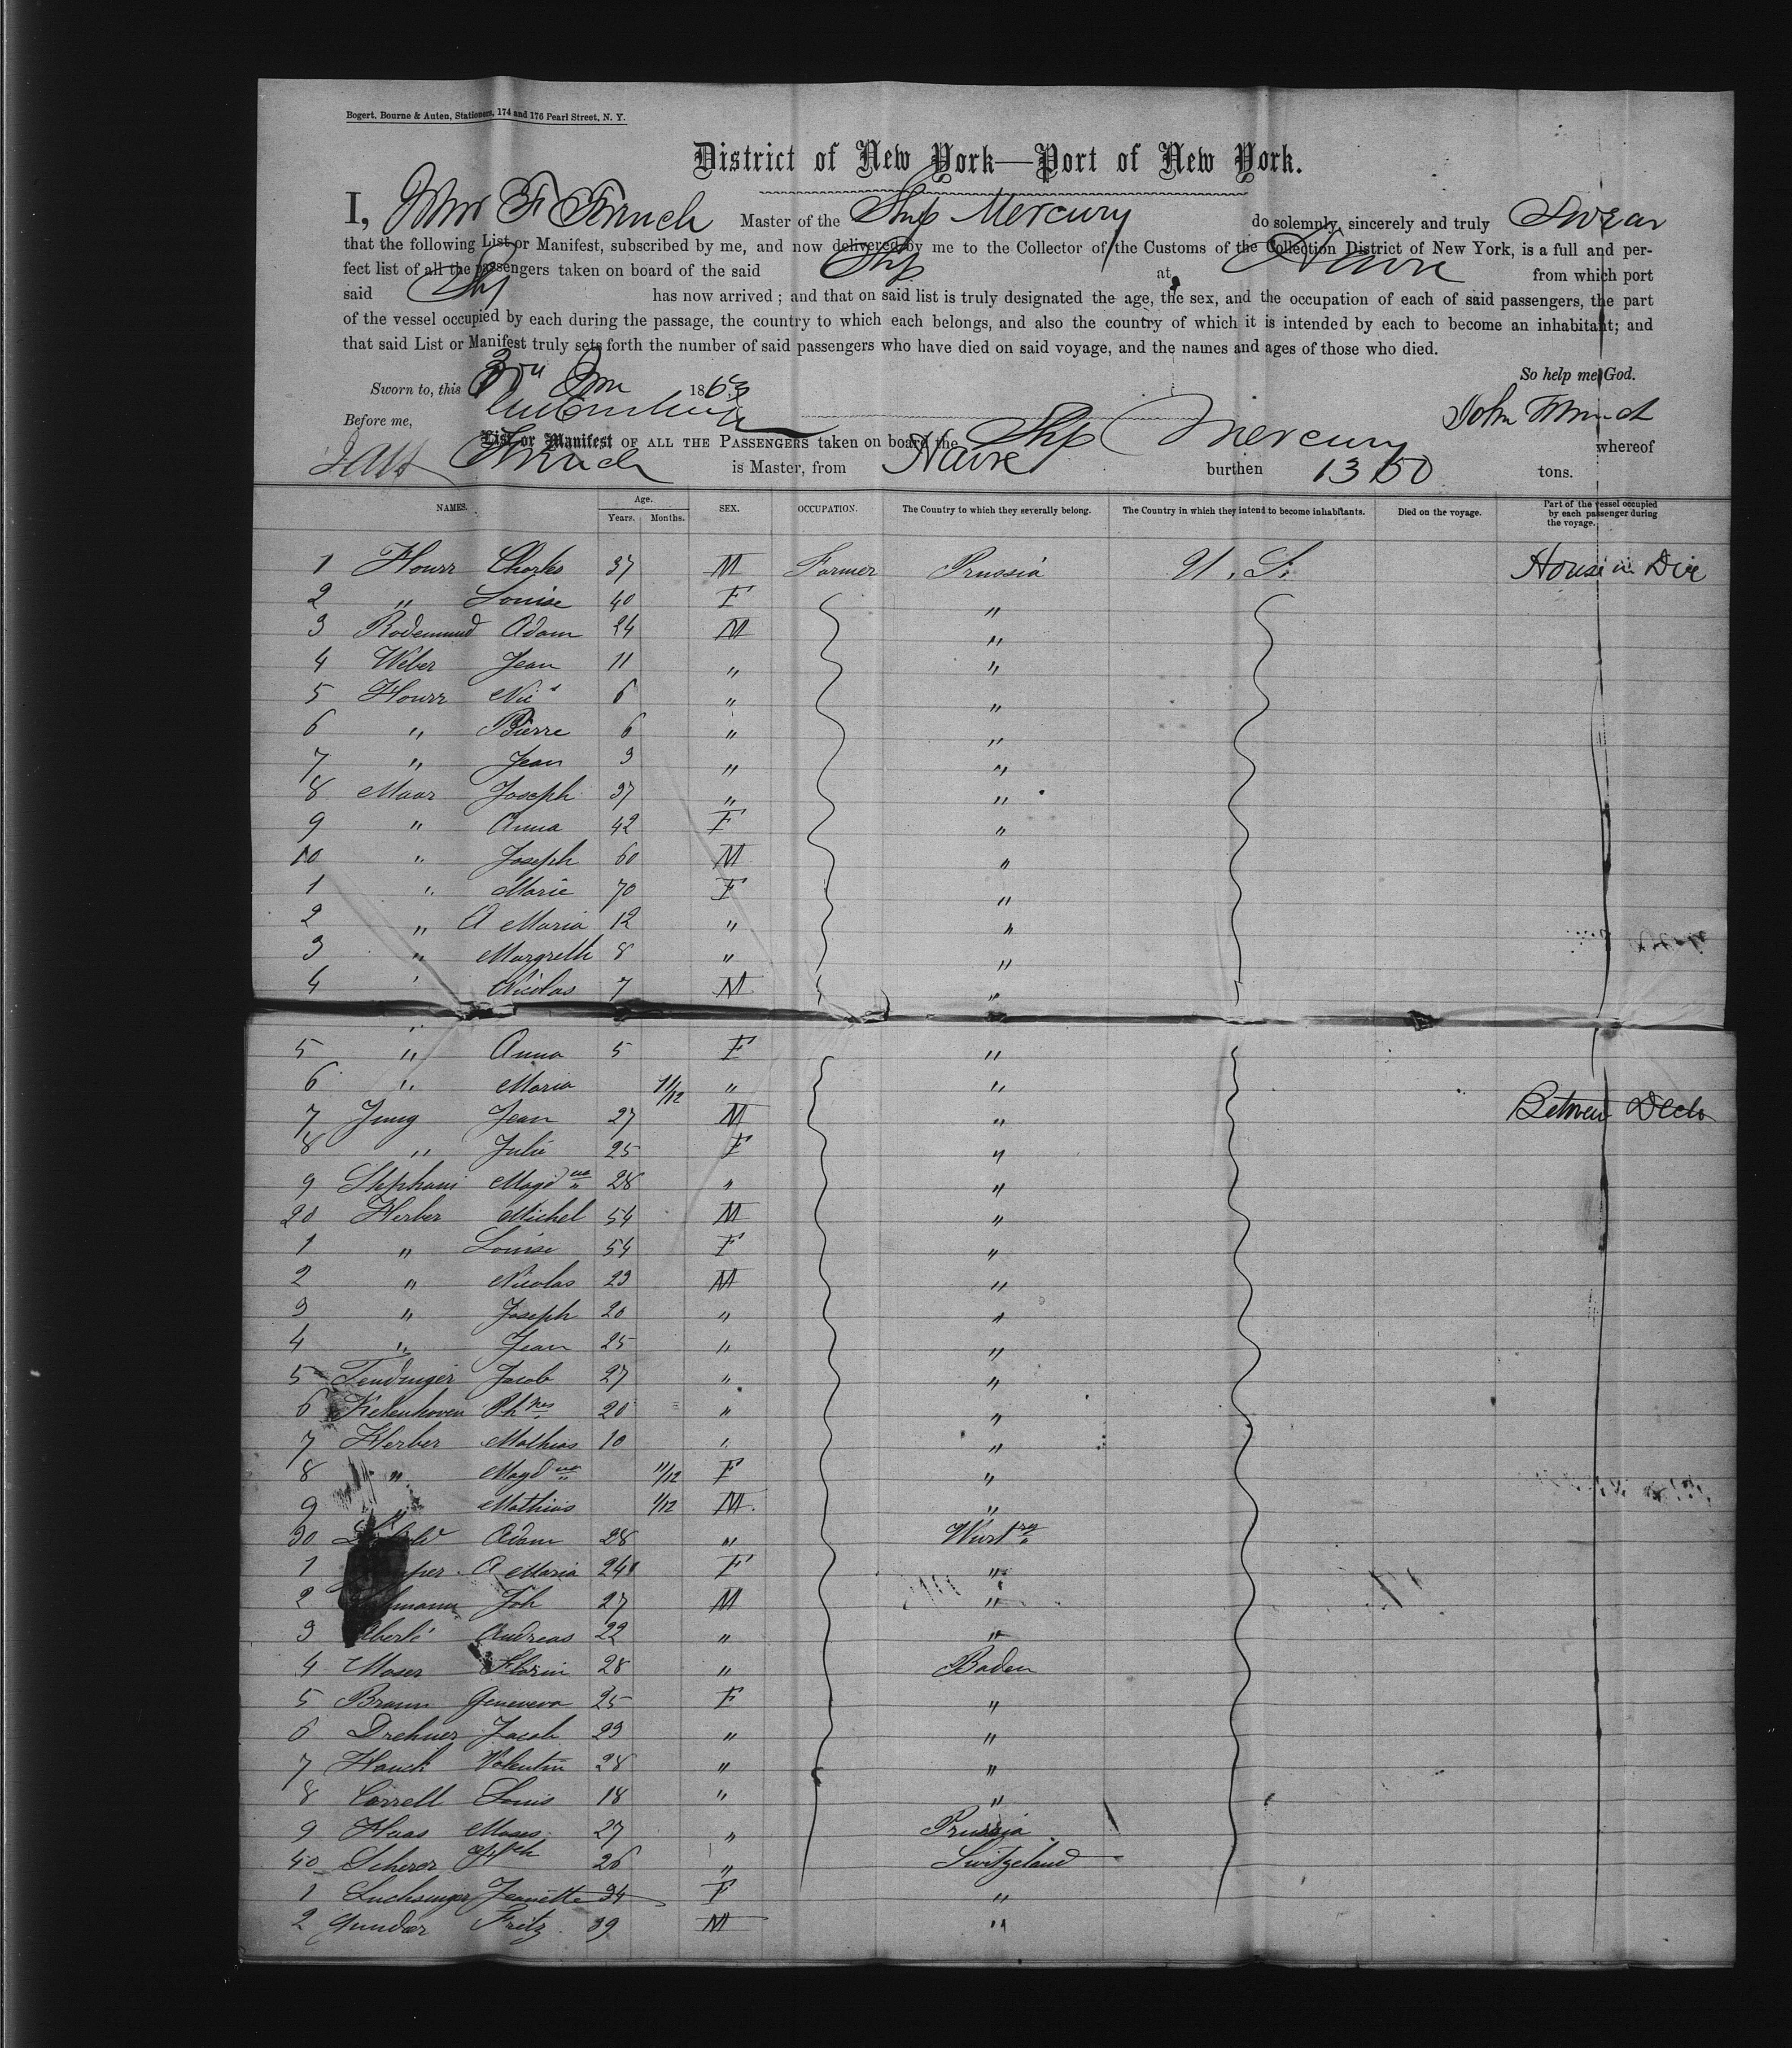 Bogert, Bourne & Auten, Stationers, 174 and 176 Pearl Street, N. Y.
District of New York—Port of New York.
I, John F French Master of the Ship Mercury do solemnly, sincerely and truly Swear
that the following List or Manifest, subscribed by me, and now delivered by me to the Collector of the Customs of the Collection District of New York, is a full and per-
fect list of all the passengers taken on board of the said Ship at Havre from which port
said Ship has now arrived; and that on said list is truly designated the age, the sex, and the occupation of each of said passengers, the part
of the vessel occupied by each during the passage, the country to which each belongs, and also the country of which it is intended by each to become an inhabitant; and
that said List or Manifest truly sets forth the number of said passengers who have died on said voyage, and the names and ages of those who died.
So help me God.
Sworn to, this 1863
Before me, John French
List or Manifest OF ALL THE PASSENGERS taken on board the Ship Mercury whereof
French is Master, from Havre burthen 1350 tons.
NAMES. Age. Years. Months. SEX. OCCUPATION. The Country to which they severally belong. The Country in which they intend to become inhabitants. Died on the voyage. Part of the vessel occupied by each passenger during the voyage.
1 Hourr Charles 37 M Farmer Prussia U. S. House in
2 " Louise 40 F "
3 Rodemund Adam 24 M "
4 Weber Jean 11 " "
5 Hourr Nic^s 6 " "
6 " Pierre 6 " "
7 " Jean 3 " "
8 Maar Joseph 37 " "
9 " Anna 42 F "
10 " Joseph 60 M "
1 " Marie 70 F "
2 " A Maria 12 " "
3 " Margreth 8 " "
4 " Nicolas 7 M "
5 " Anna 5 F "
6 " Maria 11/12 " "
7 Jung Jean 27 M " Between Decks
8 " Julie 25 F "
9 Stephani Magd^na 28 " "
20 Herber Michel 54 M "
1 " Louise 54 F "
2 " Nicolas 23 M "
3 " Joseph 20 " "
4 " Jean 25 " "
5 Tendinger Jacob 27 " "
6 Kelenhoven 20 " "
7 Herber Mathias 10 " "
8 " Magd^na 11/12 F "
9 " Mathias 1/12 M "
30 Adam 28 " Wurt^rg
1 A Maria 24 F "
2 Joh 27 M "
3 Eberlé Andreas 22 " "
4 Moser Florin 28 " Baden
5 Braun Geneveva 25 F "
6 Drehner Jacob 23 " "
7 Hauck Valentin 28 " "
8 Correll Louis 18 " "
9 Haas Moses 27 " Prussia
40 Scherer Jos^ph 26 " Switzeland
1 Luchsinger Jeanette 34 F "
2 Gunder Fritz 39 M "